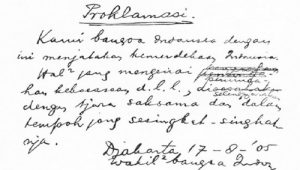 Proklamasi
Kami bangsa Indonesia dengan
ini menjatakan kemerdekaan Indonesia.
Hal² jang mengenai
kekoeasaan d.l.l., diselenggarakan
dengan tjara saksama dan dalam
tempoh jang sesingkat-singkat-
nja.
Djakarta 17-8-'05
Wakil² bangsa Indon